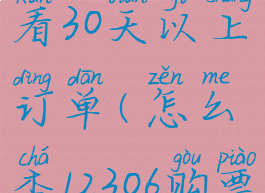 看30天以上
dìng dān zěn me
订单(怎么
chá gòu piào
查12306购票